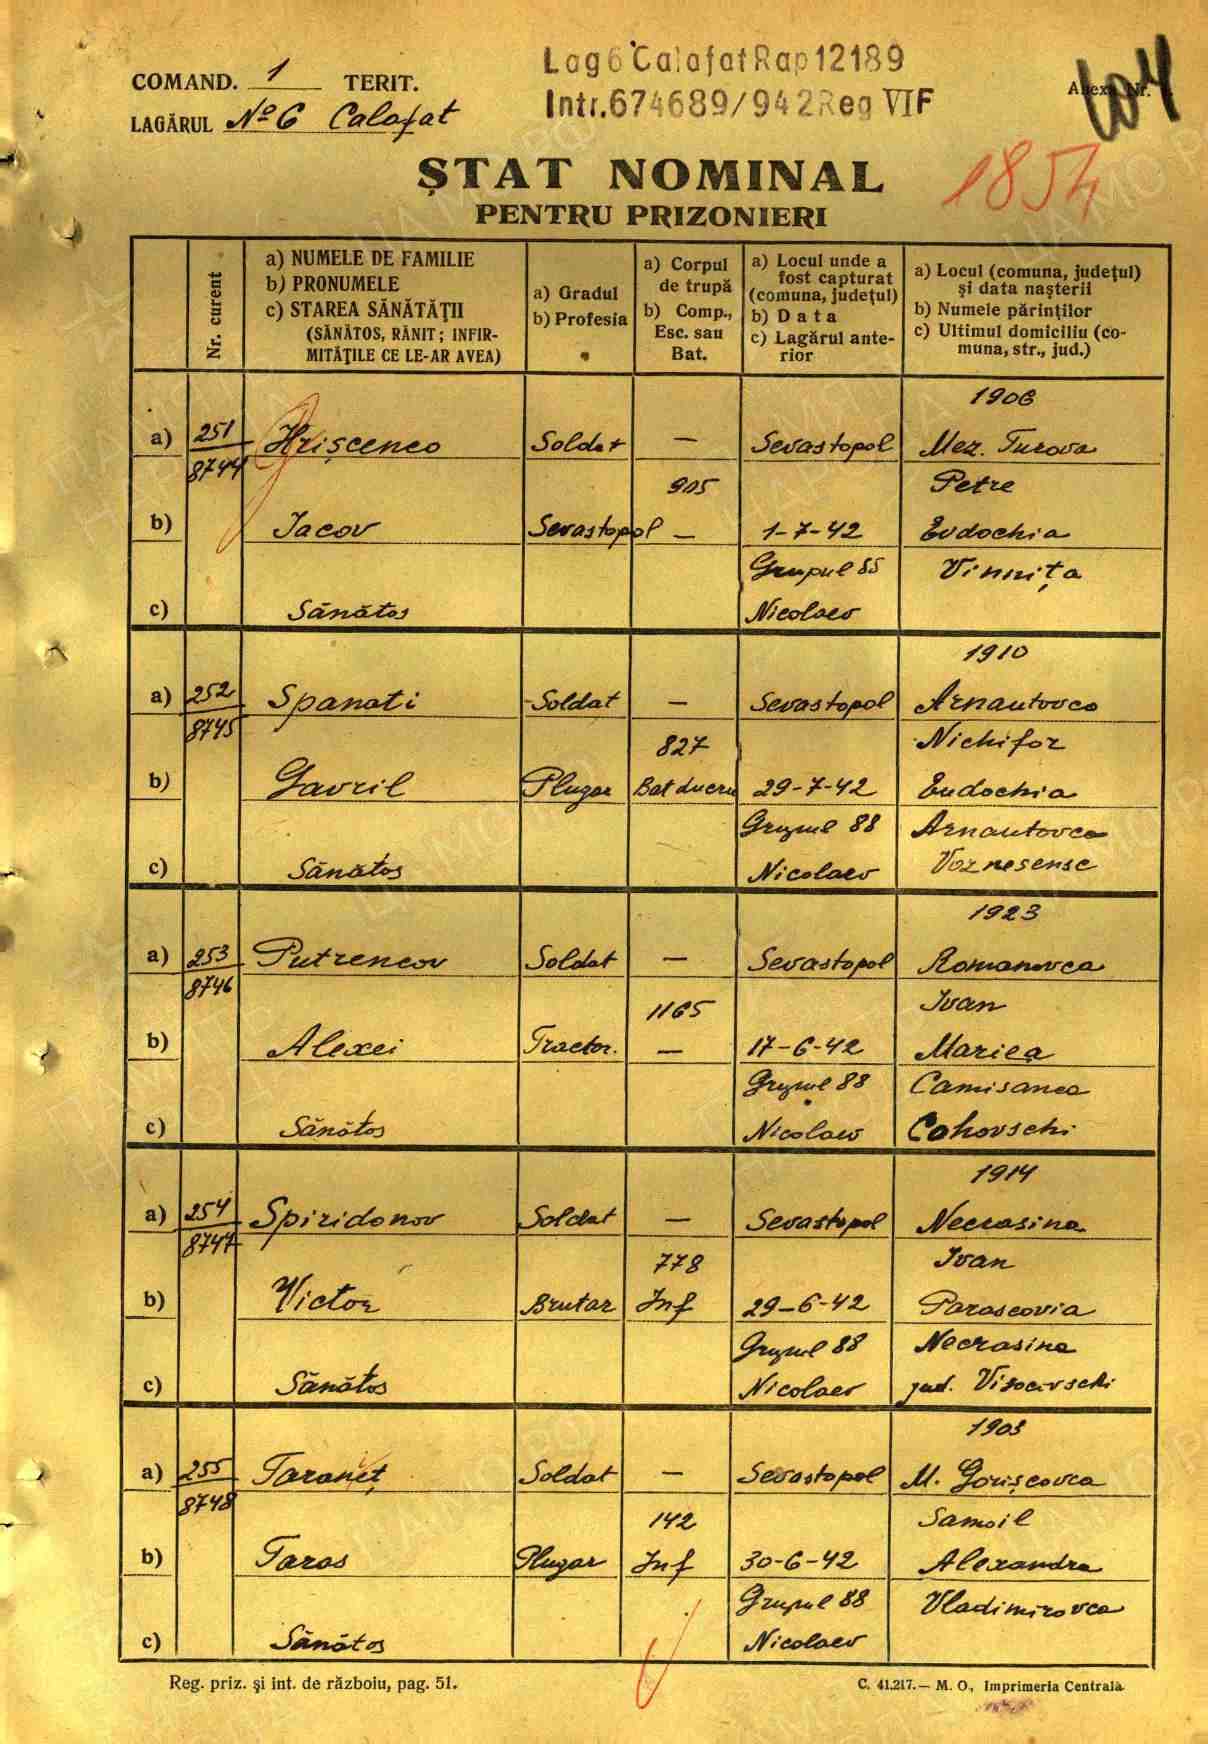 Lag 6 Calafat Rap 12189
Intr. 674689/942 Reg VIF
COMAND. 1 TERIT.
Anexa Nr.
LAGĂRUL No 6 Calafat
1854
ȘTAT NOMINAL
PENTRU PRIZONIERI
Nr. curent
a) NUMELE DE FAMILIE
b) PRONUMELE
c) STAREA SĂNĂTĂȚII
(SĂNĂTOS, RĂNIT; INFIR-
MITĂȚILE CE LE-AR AVEA)
a) Gradul
b) Profesia
a) Corpul
de trupă
b) Comp.,
Esc. sau
Bat.
a) Locul unde a
fost capturat
(comuna, județul)
b) Data
c) Lagărul ante-
rior
a) Locul (comuna, județul)
și data nașterii
b) Numele părinților
c) Ultimul domiciliu (co-
muna, str., jud.)
1906
a) 251 Hrișcenco Soldat — Sevastopol Mez. Turova
8744 905 Petre
b) Iacov Sevastopol — 1-7-42 Evdochia
Grupul 88 Vinnița
c) Sănătos Nicolaev
1910
a) 252 Spanati Soldat — Sevastopol Arnautovca
8745 827 Nichifor
b) Gavril Plugar Bat lucru 29-7-42 Eudochia
Grupul 88 Arnautovca
c) Sănătos Nicolaev Voznesensc
1923
a) 253 Putrencov Soldat — Sevastopol Romanovca
8746 1165 Ivan
b) Alexei Tractor. — 17-6-42 Mariea
Grupul 88 Camisanca
c) Sănătos Nicolaev Cahovschi
1914
a) 254 Spiridonov Soldat — Sevastopol Necrasina
8747 778 Ivan
b) Victor Brutar Inf 29-6-42 Parascovia
Grupul 88 Necrasina
c) Sănătos Nicolaev jud.
1903
a) 255 Taraneț Soldat — Sevastopol M. Gorișcovca
8748 142 Samoil
b) Taras Plugar Inf 30-6-42 Alexandra
Grupul 88 Vladimirovca
c) Sănătos Nicolaev
Reg. priz. și int. de războiu, pag. 51.
C. 41.217.— M. O., Imprimeria Centrală